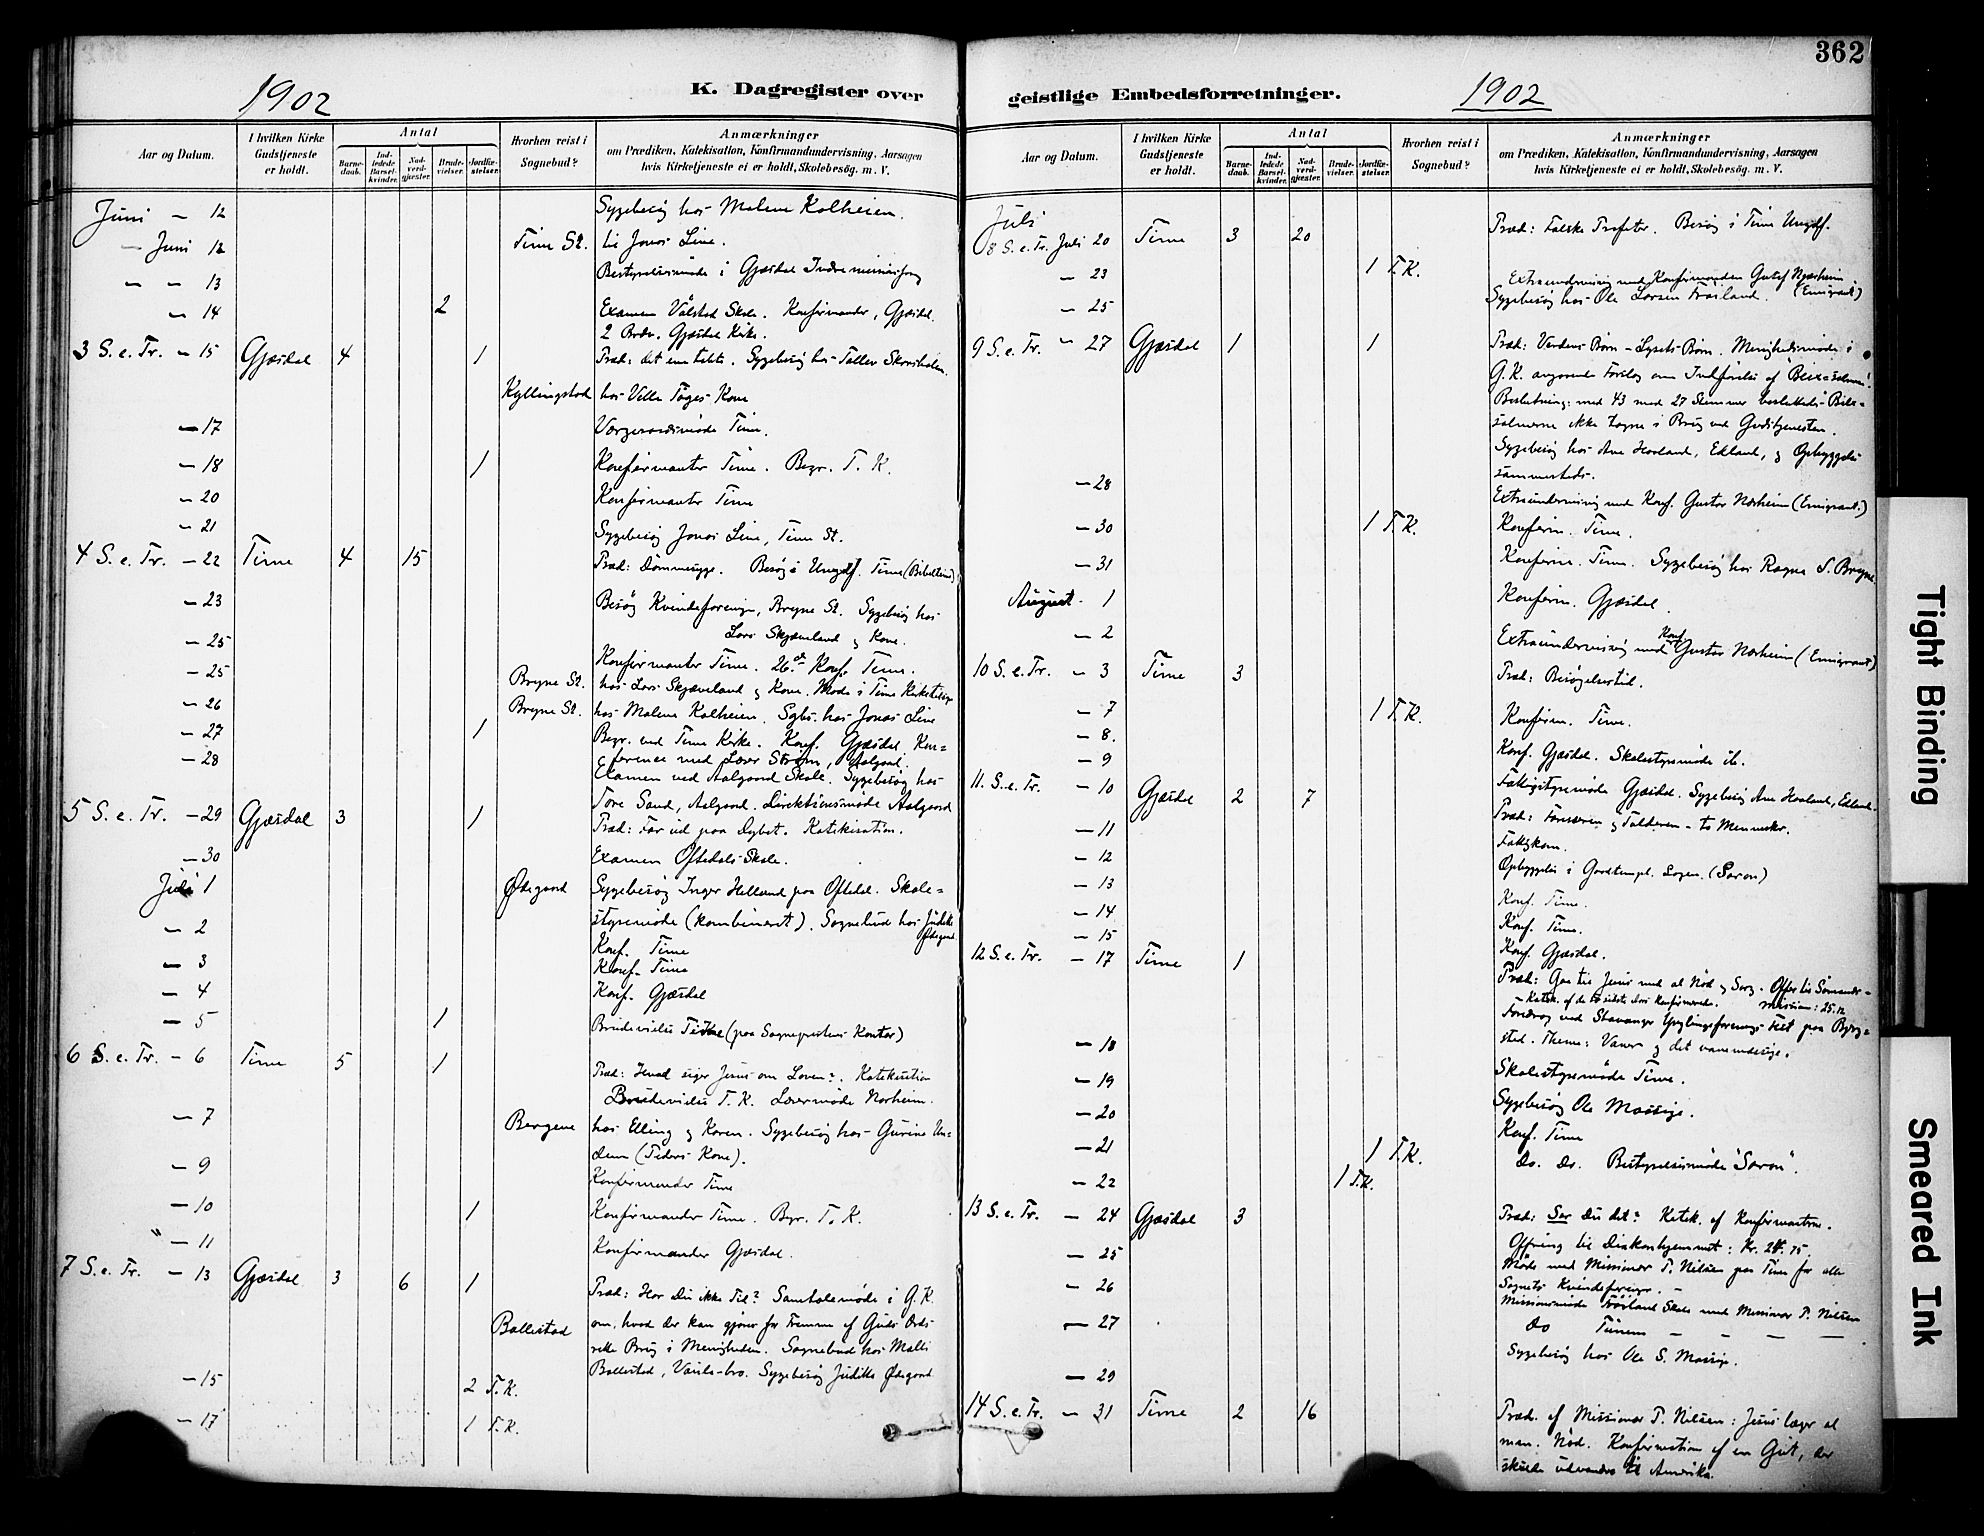 362
1902
K. Dagregister over
geistlige Embedsforretninger.
1902
Aar og Datum.
I hvilken Kirke Gudstjeneste er holdt.
Antal
Barnedaab.
Indledede Barselkvinder.
Nadverdgjæster.
Brudevielser.
Jordfæstelser.
Hvorhen reist i Sognebud?
Anmærkninger
om Prædiken, Katekisation, Konfirmandundervisning, Aarsagen
hvis Kirketjeneste ei er holdt, Skolebesøg. m. V.
Juni - 12 Sygebesøg hos Malene Kalheien.
- Juni 12 Time St. til Jonas Line.
- - 13 Bestyrelsesmøde i Gjæsdal
- 14 2 Examen Vålstad Skole. Konfirmander, Gjæsdal.
2 Brdv. Gjæsdal Kirke.
3 S. e. Tr. - 15 Gjæsdal 4 1 Præd: det ene tabte. Sygebesøg hos
Kyllingstad hos Ville Tøges Kone
- 17 Vergeraadsmøde Time.
- 18 1 Konfirmanter Time. Begr. T. K.
- 20 Konfirmanter Time
- 21 Sygebesøg Jonas Line, Time St.
4 S. e. Tr. - 22 Time 4 15 Præd: Dømmesyge. Besøg i Ungdf. Time (Bibeltime)
- 23 Besøg Kvindeforening, Bryne St. Sygebesøg hos
Lars Skjæveland & Kone.
- 25 Konfirmanter Time. 26de Konf. Time.
- 25 Bryne St. hos Lars Skjæveland & Kone. Møde i Time
- 26 Bryne St. hos Malene Kalheien. Sgbs. hos Jonas Line
- 27 1 Begr. ved Time Kirke. Konf. Gjæsdal. Kon=
- 28 ference med Lærer Strøm, Aalgaard.
Examen ved Aalgaard Skole. Sygebesøg hos
Tore Sand, Aalgaard. Direktionsmøde Aalgaard
5 S. e. Tr. - 29 Gjæsdal 3 1 Præd: Far ud paa Dybet. Katekisation.
- 30 Examen Oftedals Skole.
Juli 1 Ødegaard Sygebesøg Inger Helland paa Oftedal. Skole=
styremøde (kombineret). Sognebud hos Judithe
Ødegaard
- 2 Konf. Time
- 3 Konf. Time
- 4 Konf. Gjæsdal
- 5 1 Brudevielse Time (paa Sogneprestens Kontor)
6 S. e. Tr. - 6 Time 5 1 Præd: Hvad siger Jesus om Loven?. Katekisation
Brudevielse T. K. Lærermøde Norheim.
- 7 Bergene hos Elling & Karen. Sygebesøg hos Gurine Un-
dem (Peders Kone).
- 9 Konfirmander Time
- 10 1 Konfirmander Time. Begr. T. K.
" - 11 Konfirmander Gjæsdal.
7 S. e. Tr. - 13 Gjæsdal 3 6 1 Præd: Har Du ikke Tid? Samtalemøde i G. K.
Ballestad om, hvad der kan gjøres for Fremme af Guds Ords
rette Brug i Menigheden. Sognebud hos Malli
Ballestad, Sygebesøg Judithe Ødegaard
- 15 2 T. K.
- 17 1 T. K.
Aar og Datum.
I hvilken Kirke Gudstjeneste er holdt.
Antal
Barnedaab.
Indledede Barselkvinder.
Nadverdgjæster.
Brudevielser.
Jordfæstelser.
Hvorhen reist i Sognebud?
Anmærkninger
om Prædiken, Katekisation, Konfirmandundervisning, Aarsagen
hvis Kirketjeneste ei er holdt, Skolebesøg. m. V.
Juli
8 S. e. Tr. Juli 20 Time 3 20 Præd: Falske Profeter. Besøg i Time Ungdf.
- 23 1 T. K. Extraundervisning med Konfirmanden Gustaf Norheim
(Emigrant)
- 25 Sygebesøg hos Ole Larsen Frøiland.
9 S. e. Tr. - 27 Gjæsdal 1 1 Præd: Verdens Børn - Lysets Børn. Menighedsmøde i
G. K. angaaende Forslag om Indførelse af
Beslutning: med 43 mod 27 Stemmer besluttedes
salmerne ikke tagne i Brug ved Gudstjenesten.
Sygebesøg hos Ane Hovland, Edland, & Opbyggelse
sammesteds.
- 28 Extraundervisning med Konf. Gustav Norheim (Emigrant.)
- 30 1 T. K. Konfirm. Time.
- 31 Konfirm. Time. Sygebesøg hos Ragna S. Bryne
August. 1 Konfirm. Gjæsdal.
- 2 Extraundervisning med Konf. Gustav Norheim (Emigrant)
10 S. e. Tr. - 3 Time 3 Præd: Besøgelsestid.
- 7 1 T. K. Konfirm. Time.
- 8. Konf. Gjæsdal. Skolestyremøde ib.
- 9 Fattigstyremøde Gjæsdal. Sygebesøg Ane Hovland, Edland.
11. S. e. Tr. - 10 Gjæsdal 2 7 Præd: Farisæeren & Tolderen - to Mennesker.
- 11 Fattigkom.
- 12 Opbyggelse i Goodtempl. Logen. (Saron)
- 13 Konf. Time.
- 14 Konf. Time.
- 15 Konf. Gjæsdal.
12 S. e. Tr. - 17 Time 1 Præd: Gaa til Jesus med al Nød & Sorg. Offer til Sømands-
- Katek. af de to sidste Aars Konfirmerede. missionen: 25.12
Foredrag ved Stavanger Ynglingeforenings Fest paa
sted. Thema: Vaner & det vanemæssige.
- 18 Skolestyremøde Time.
- 19 Sygebesøg Ole Mossige.
- 20 Konf. Time
- 21 1 T. K. do. do. Bestyrelsesmøde "Saron".
- 22 1 T. K.
13 S. e. Tr. - 24 Gjæsdal 3 Præd: Ser Du det? Katek. af Konfirmanterne.
Offring til Diakonhjemmet: Kr. 24.75.
- 25 Møde med Missionær P. Nilsen paa Time for alle
Sognets Kvindeforeninger. -
- 26 Missionsmøde Frøiland Skole med Missionær P. Nilsen
- 27 do Tunem - - - -
- 29 Sygebesøg hos Ole S. Mossige.
14 S. e. Tr. - 31 Time 2 16 Præd. af Missionær P. Nilsen: Jesus læger al
men. Nød. Konfirmation af en Gut, der
skulde udvandre til Amerika.
Tight Binding
Smeared Ink